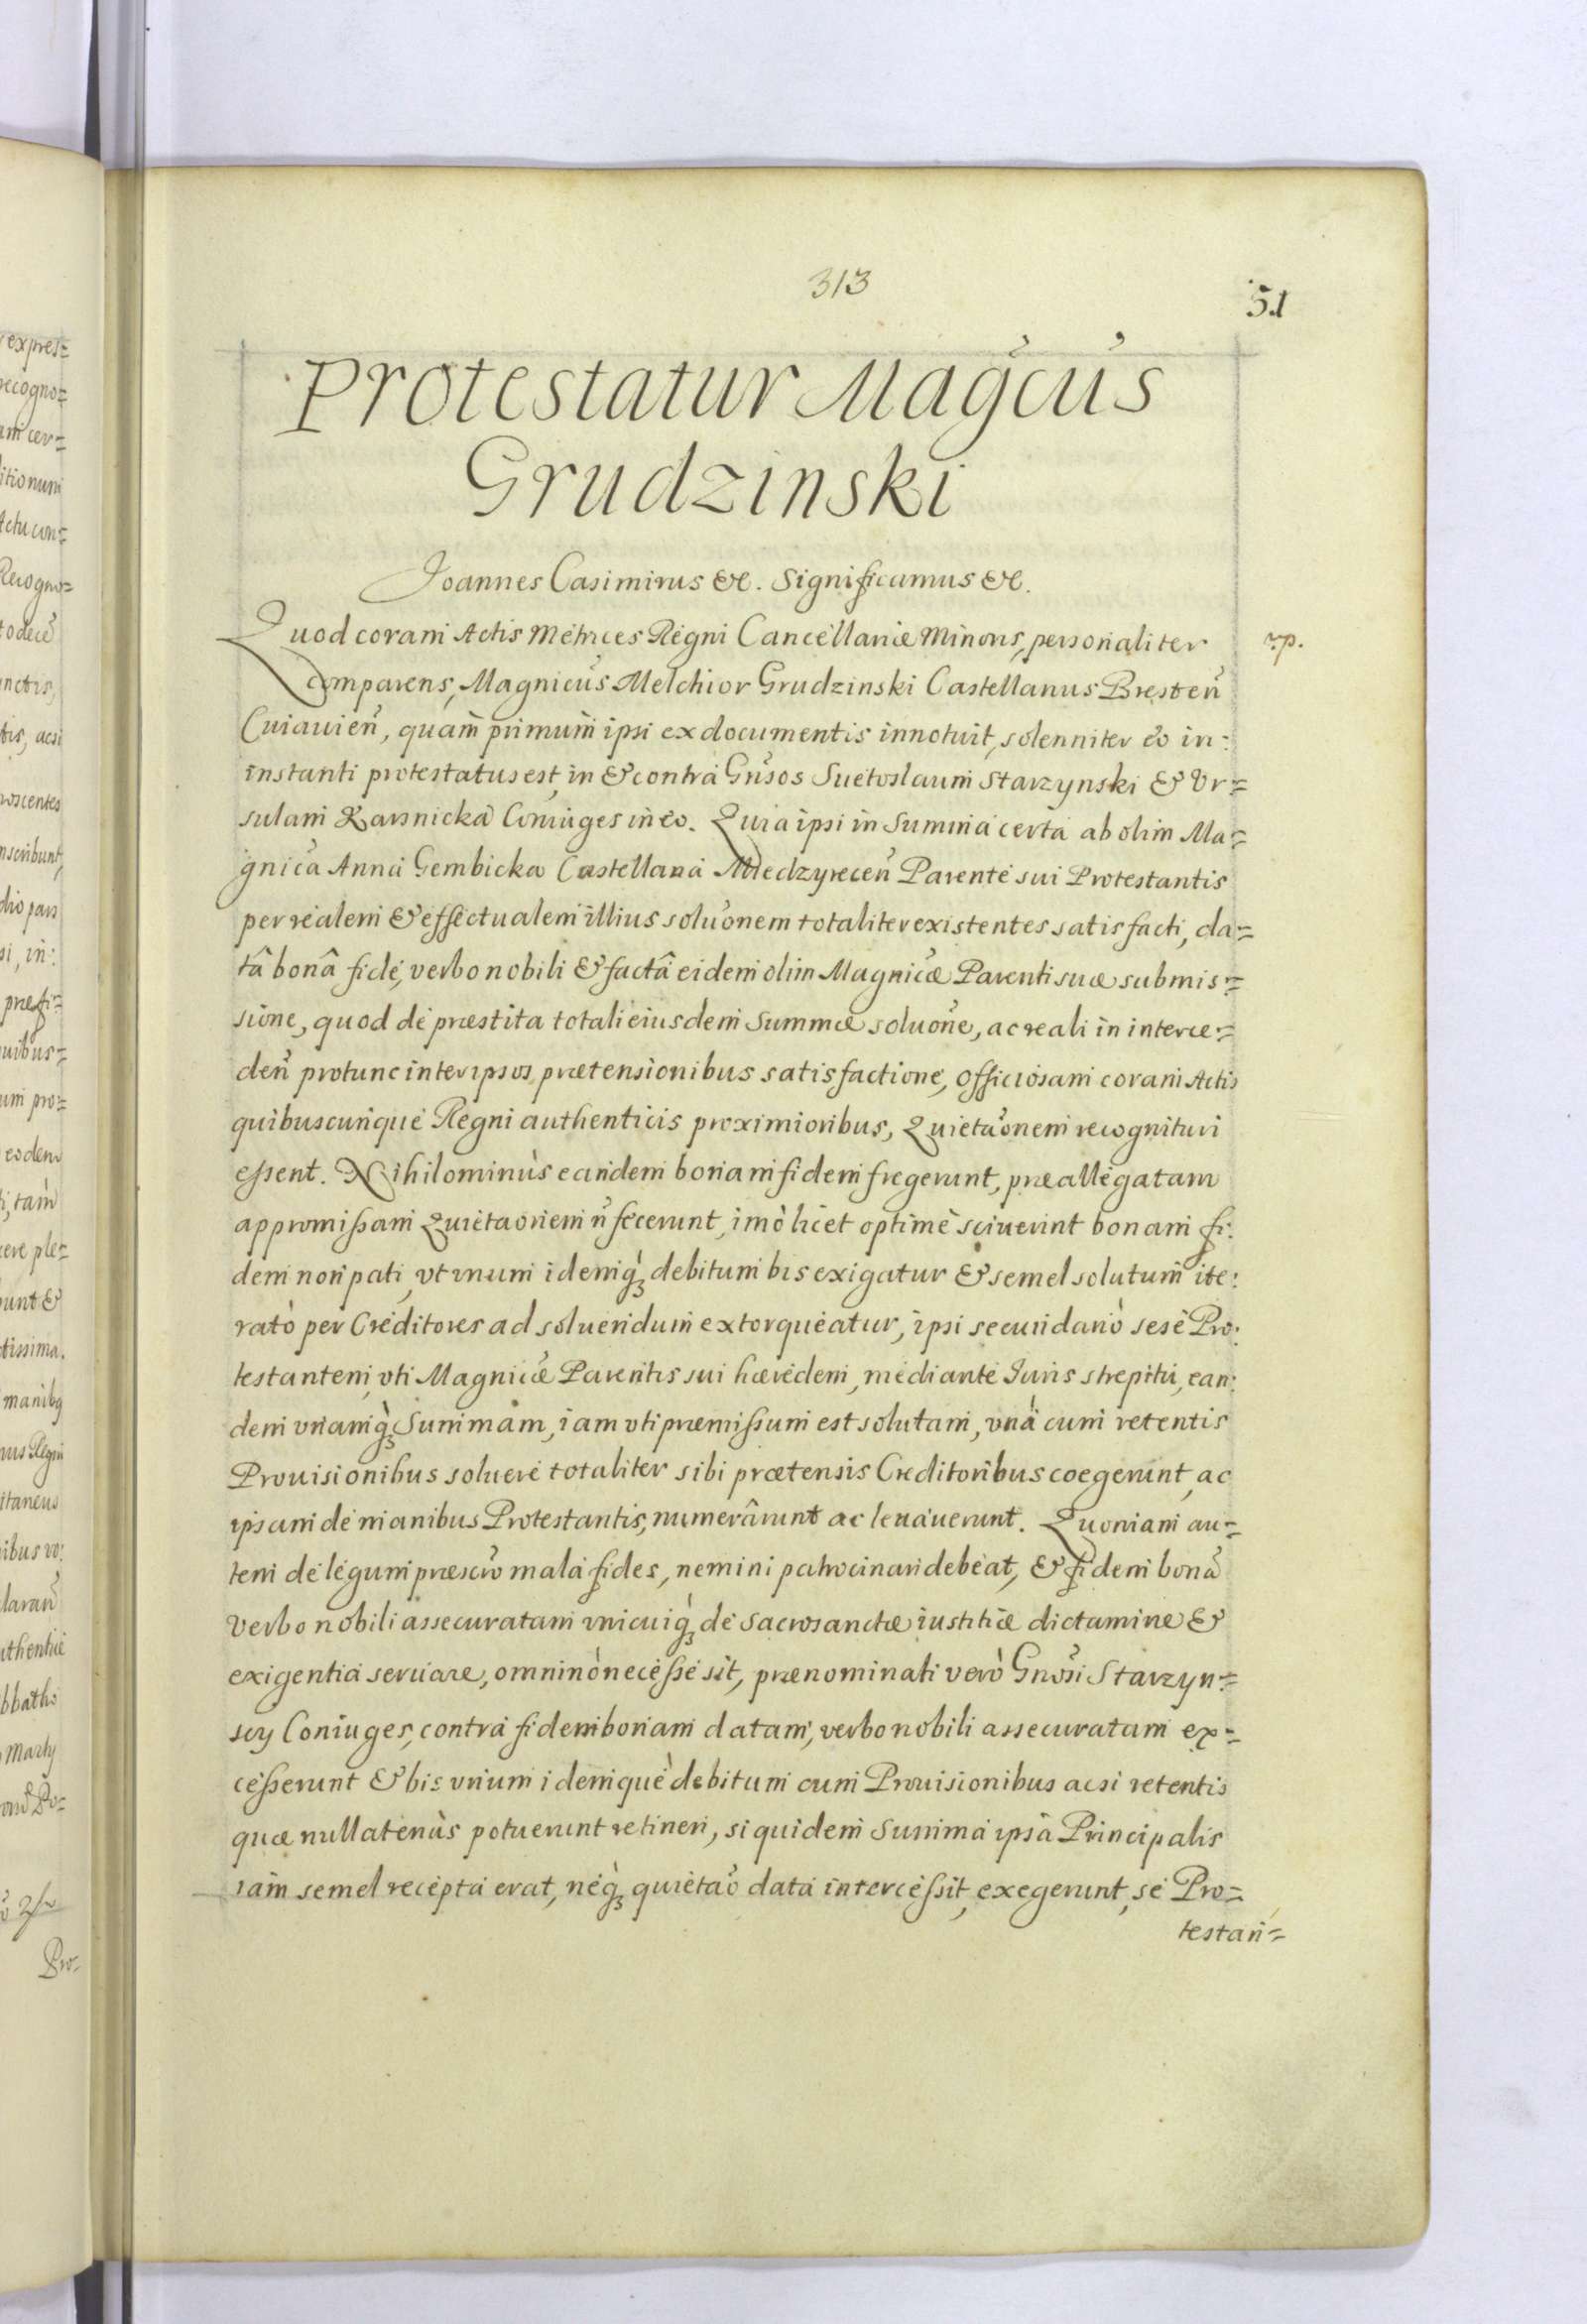 expres=
recogno=
am cer=
itionum
Actu con=
Recogno=
nctis,
tis, acsi
noscentes
nscribunt,
dio pars
si, in:
præfi=
uibus=
um pro=
eodem
ti, tam
cere ple=
bunt &
tissima.
manibq
nus Regni
itaneus
ibus vo:
laran̄
uthentice
bbatho
Marty
Pro-
313
51
Protestatur Magcus
Grudzinski
Joannes Casimirus &c. Significamus &c.
Quod coram Actis Metrices Regni Cancellariæ Minoris, personaliter
rp.
comparens, Magnicus Melchior Grudzinski Castellanus Bresten̄
Cuiauien̄, quam primum ipsi ex documentis innotuit, solenniter eo in:
instanti protestatus est, in & contra Gn̄sos Suetoslaum Starzynski & Ur=
sulam Karsnicka Coniuges in eo. Quia ipsi in Summa certa ab olim Ma=
gnica Anna Gembicka Castellana Miedzyrecen̄ Parente sui Protestantis
per realem & effectualem illius soluōnem totaliter existentes satisfacti, da=
tâ bonâ fide, verbo nobili & factâ eidem olim Magnicæ Parenti suæ submis=
sione, quod de præstita totali eiusdem Summæ soluōne, ac reali in interce=
den̄ protunc inter ipsos prætensionibus satisfactione, officiosam coram Actis
quibuscunque Regni authenticis proximioribus, Quietaōnem recognituri
eßent. Nihilominùs eandem bonam fidem fregerunt, præallegatam
appromißam Quietaōnem n̄ fecerunt, imò licet optimè sciuerint bonam fi:
dem non pati, vt vnum idemq; debitum bis exigatur & semel solutum ite:
ratò per Creditores ad soluendum extorqueatur, ipsi secundariò sese Pro:
testantem, vti Magnicæ Parentis sui hæredem, mediante Juris strepitu, ean:
dem vnamq; Summam, iam vti præmißum est solutam, vnà cum retentis
Prouisionibus soluere totaliter sibi prætensis Creditoribus coegerunt, ac
ipsam de manibus Protestantis, numerârunt ac leuauerunt. Quoniam au=
tem de legum præscrō mala fides, nemini patrocinari debeat, & fidem bonā
verbo nobili assecuratam vnicuiq; de sacrosanctæ iustitiæ dictamine &
exigentia seruare, omninò neceße sit, prænominati verò Gn̄osi Starzyn=
scy Coniuges, contra fidem bonam datam, verbo nobili assecuratam ex=
ceßerunt & bis vnum idemquè debitum cum Prouisionibus acsi retentis
quæ nullatenùs potuerunt retineri, siquidem Summa ipsa Principalis
iam semel recepta erat, neq; quietaō data interceßit, exegerunt, se Pro=
testan=